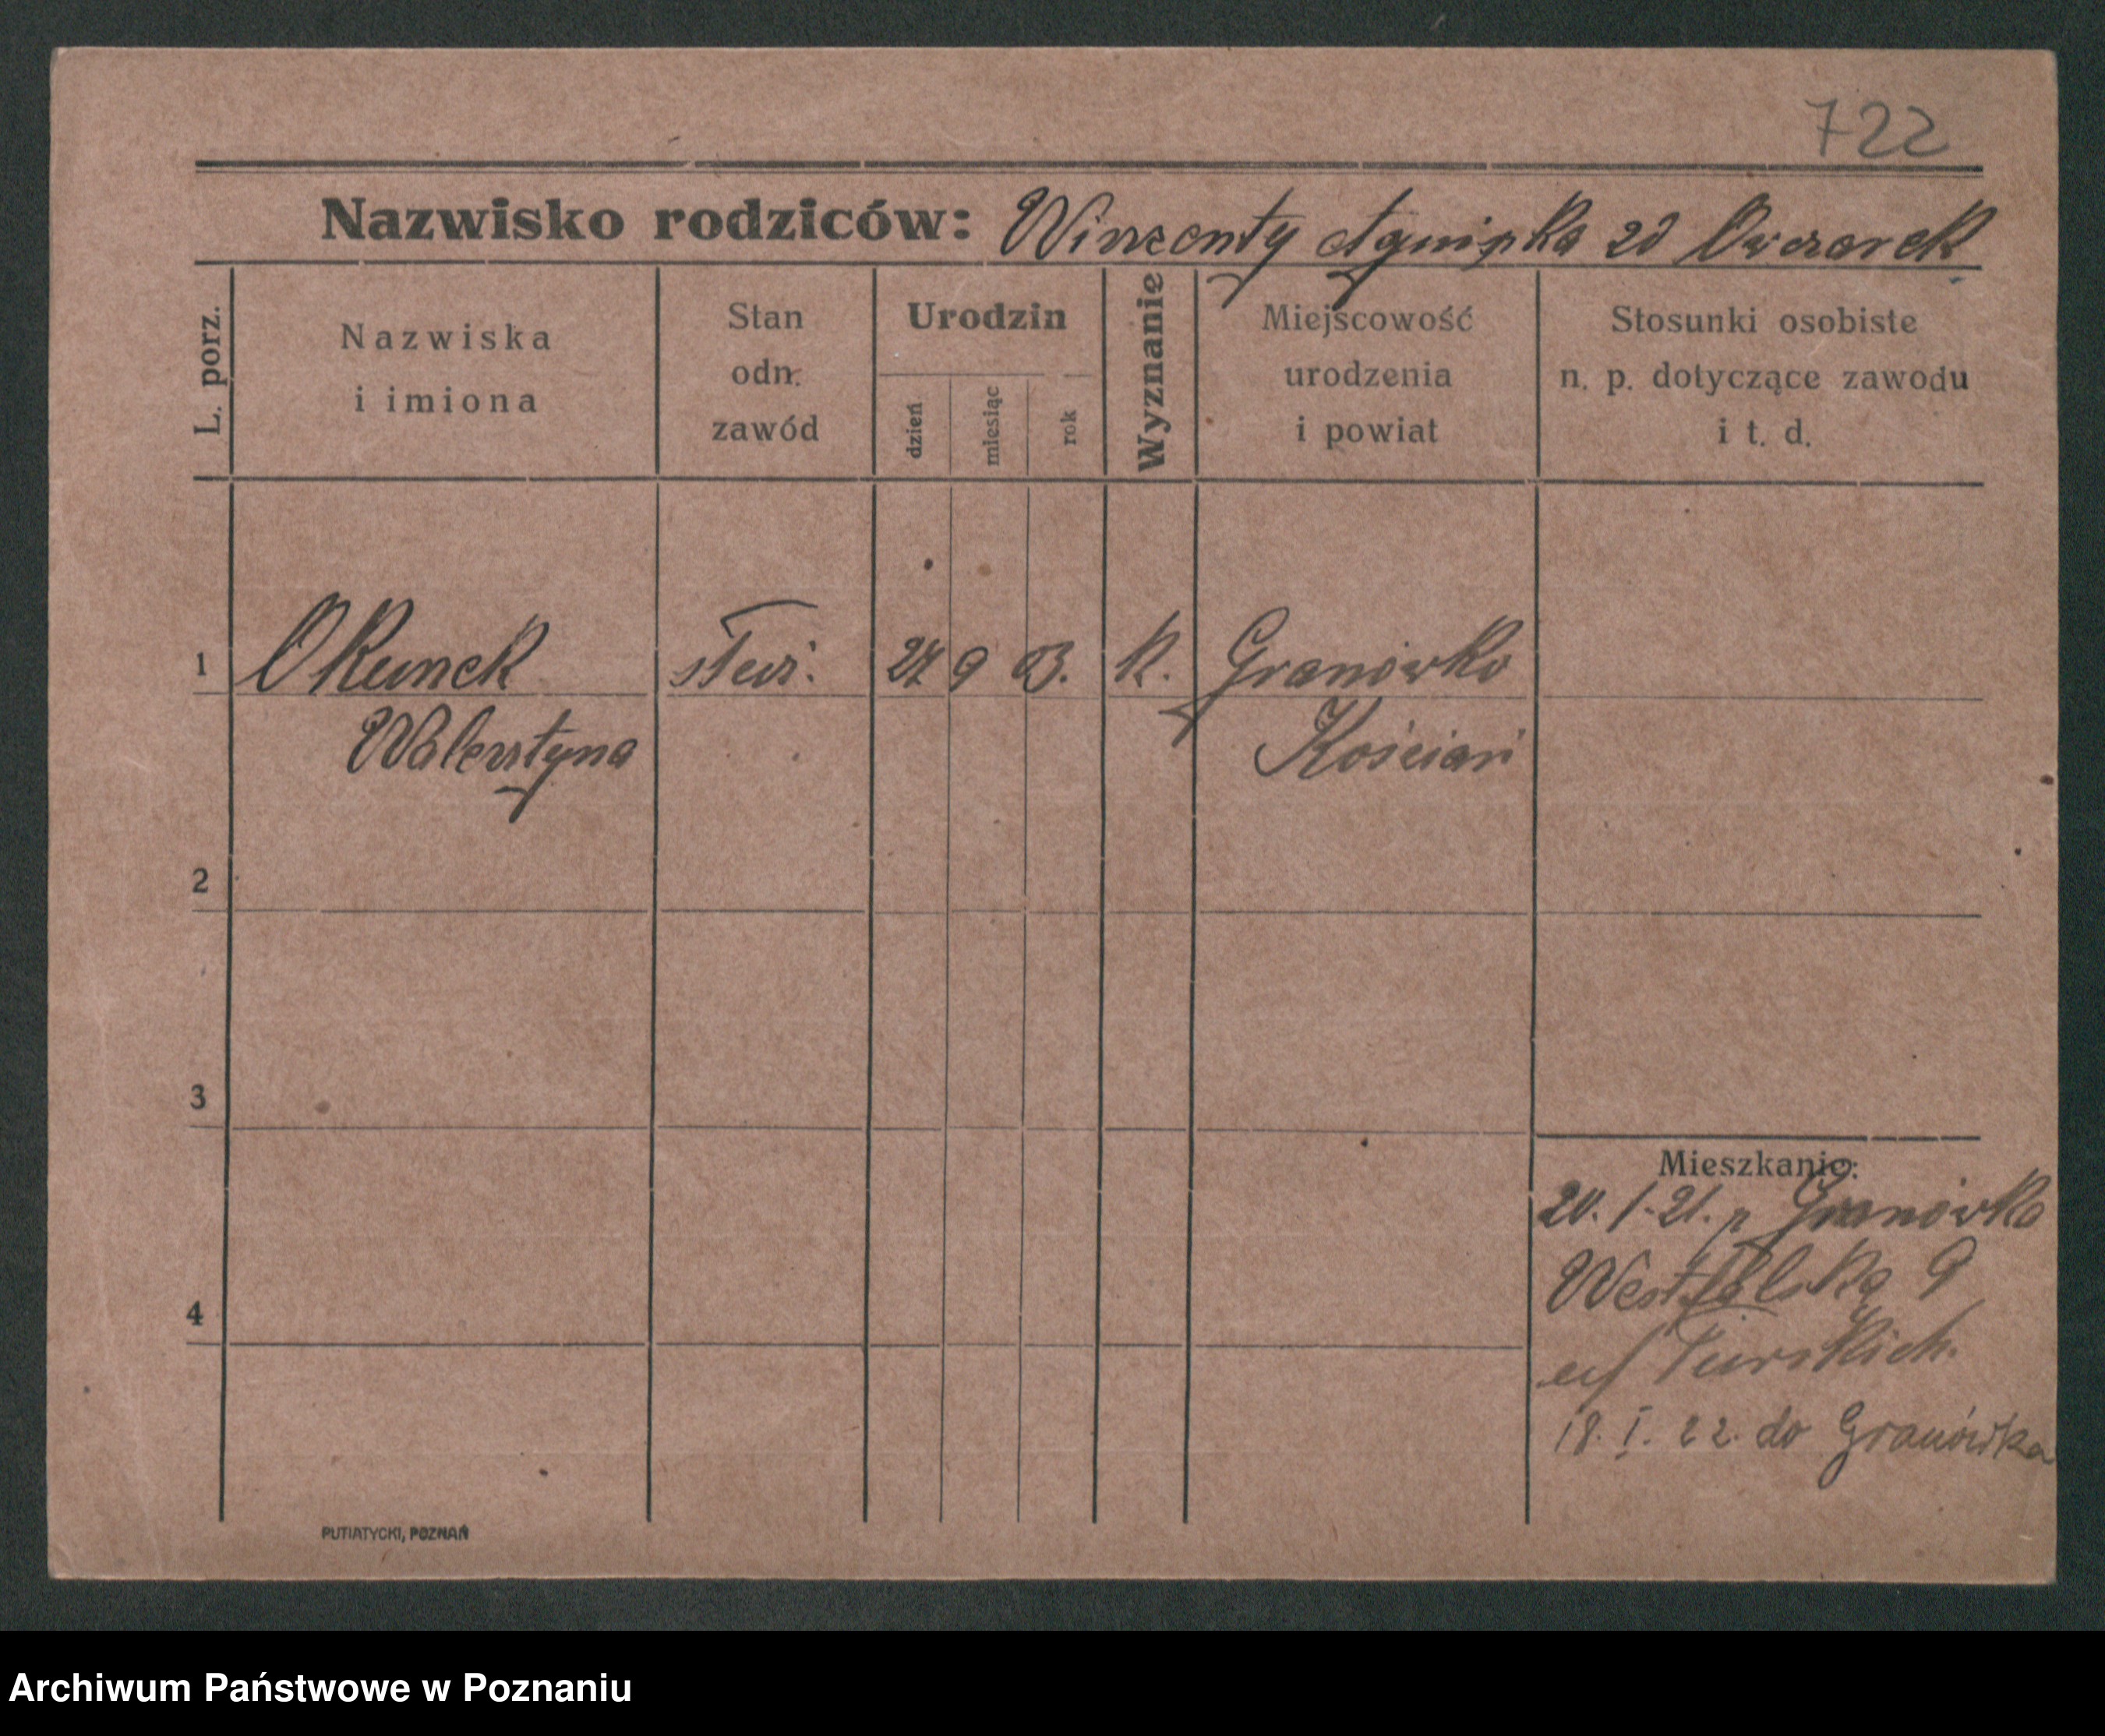 722
Nazwisko rodziców: Winzenty Agnißka zd Owczarek
L. porz.
Nazwiska
i imiona
Stan
odn.
zawód
Urodzin
dzień
miesiąc
rok
Wyznanie
Miejscowość
urodzenia
i powiat
Stosunki osobiste
n. p. dotyczące zawodu
i t. d.
1 Okunek 9 03. k. Granówko
Kościan
2
3
4
Mieszkanie:
20. 1. 21. Granówko
Westfalska 9
Turskich.
18. I. 22. do Granówka
PUTIATYCKI, POZNAŃ
Archiwum Państwowe w Poznaniu